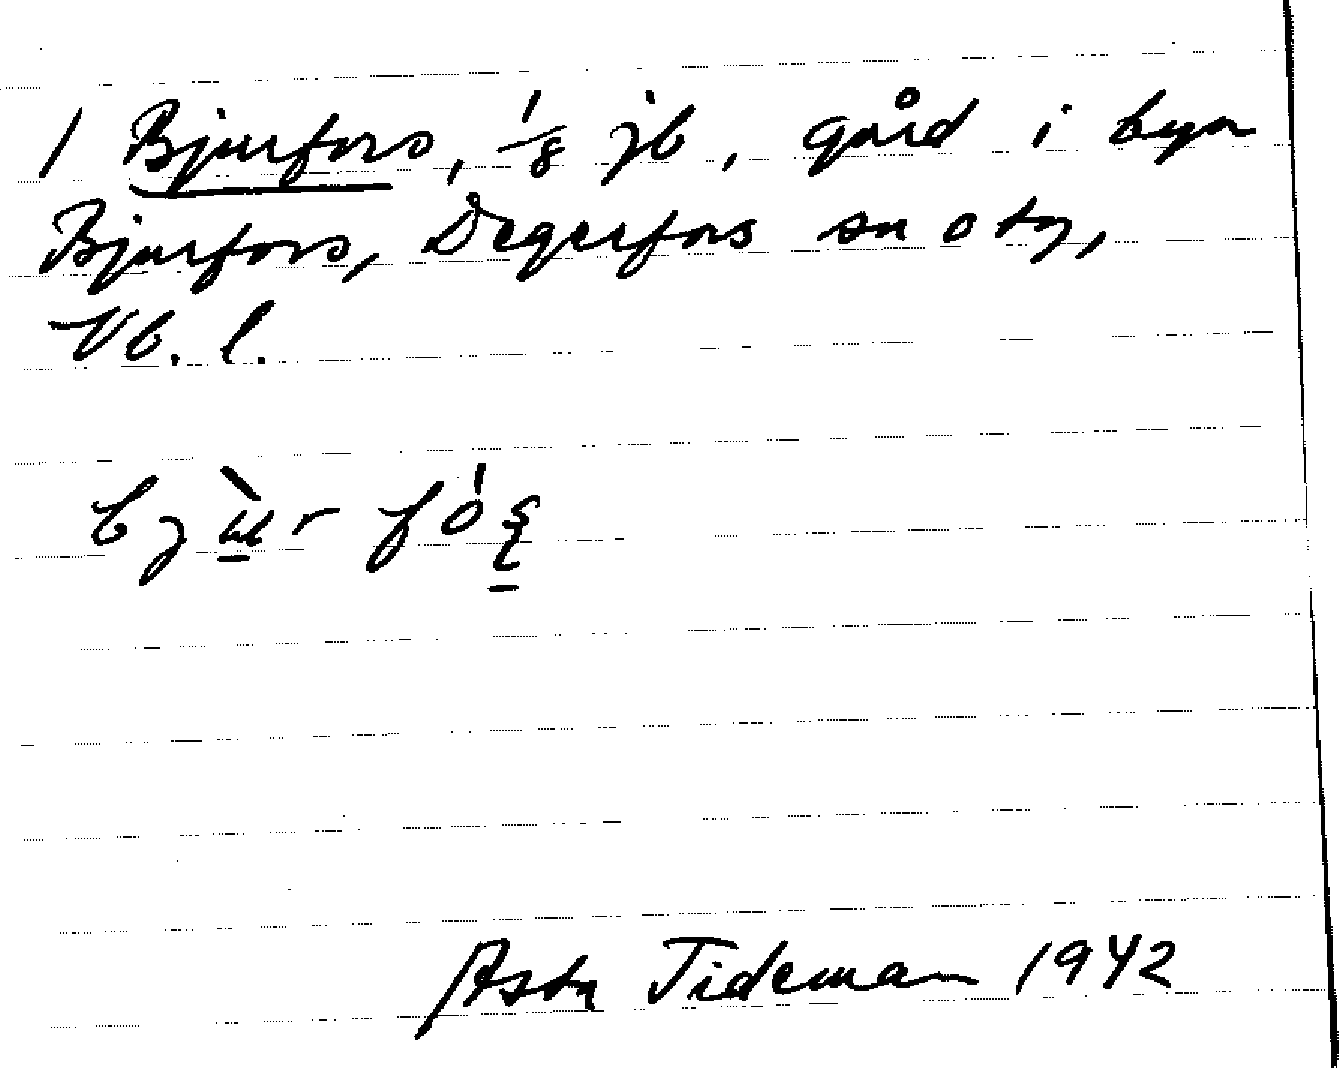 1 Bjurfors, 1/8 jb, gård i byn
Bjurfors, Degerfors sn o tg,
Vb. l.
Asta Tideman 1942